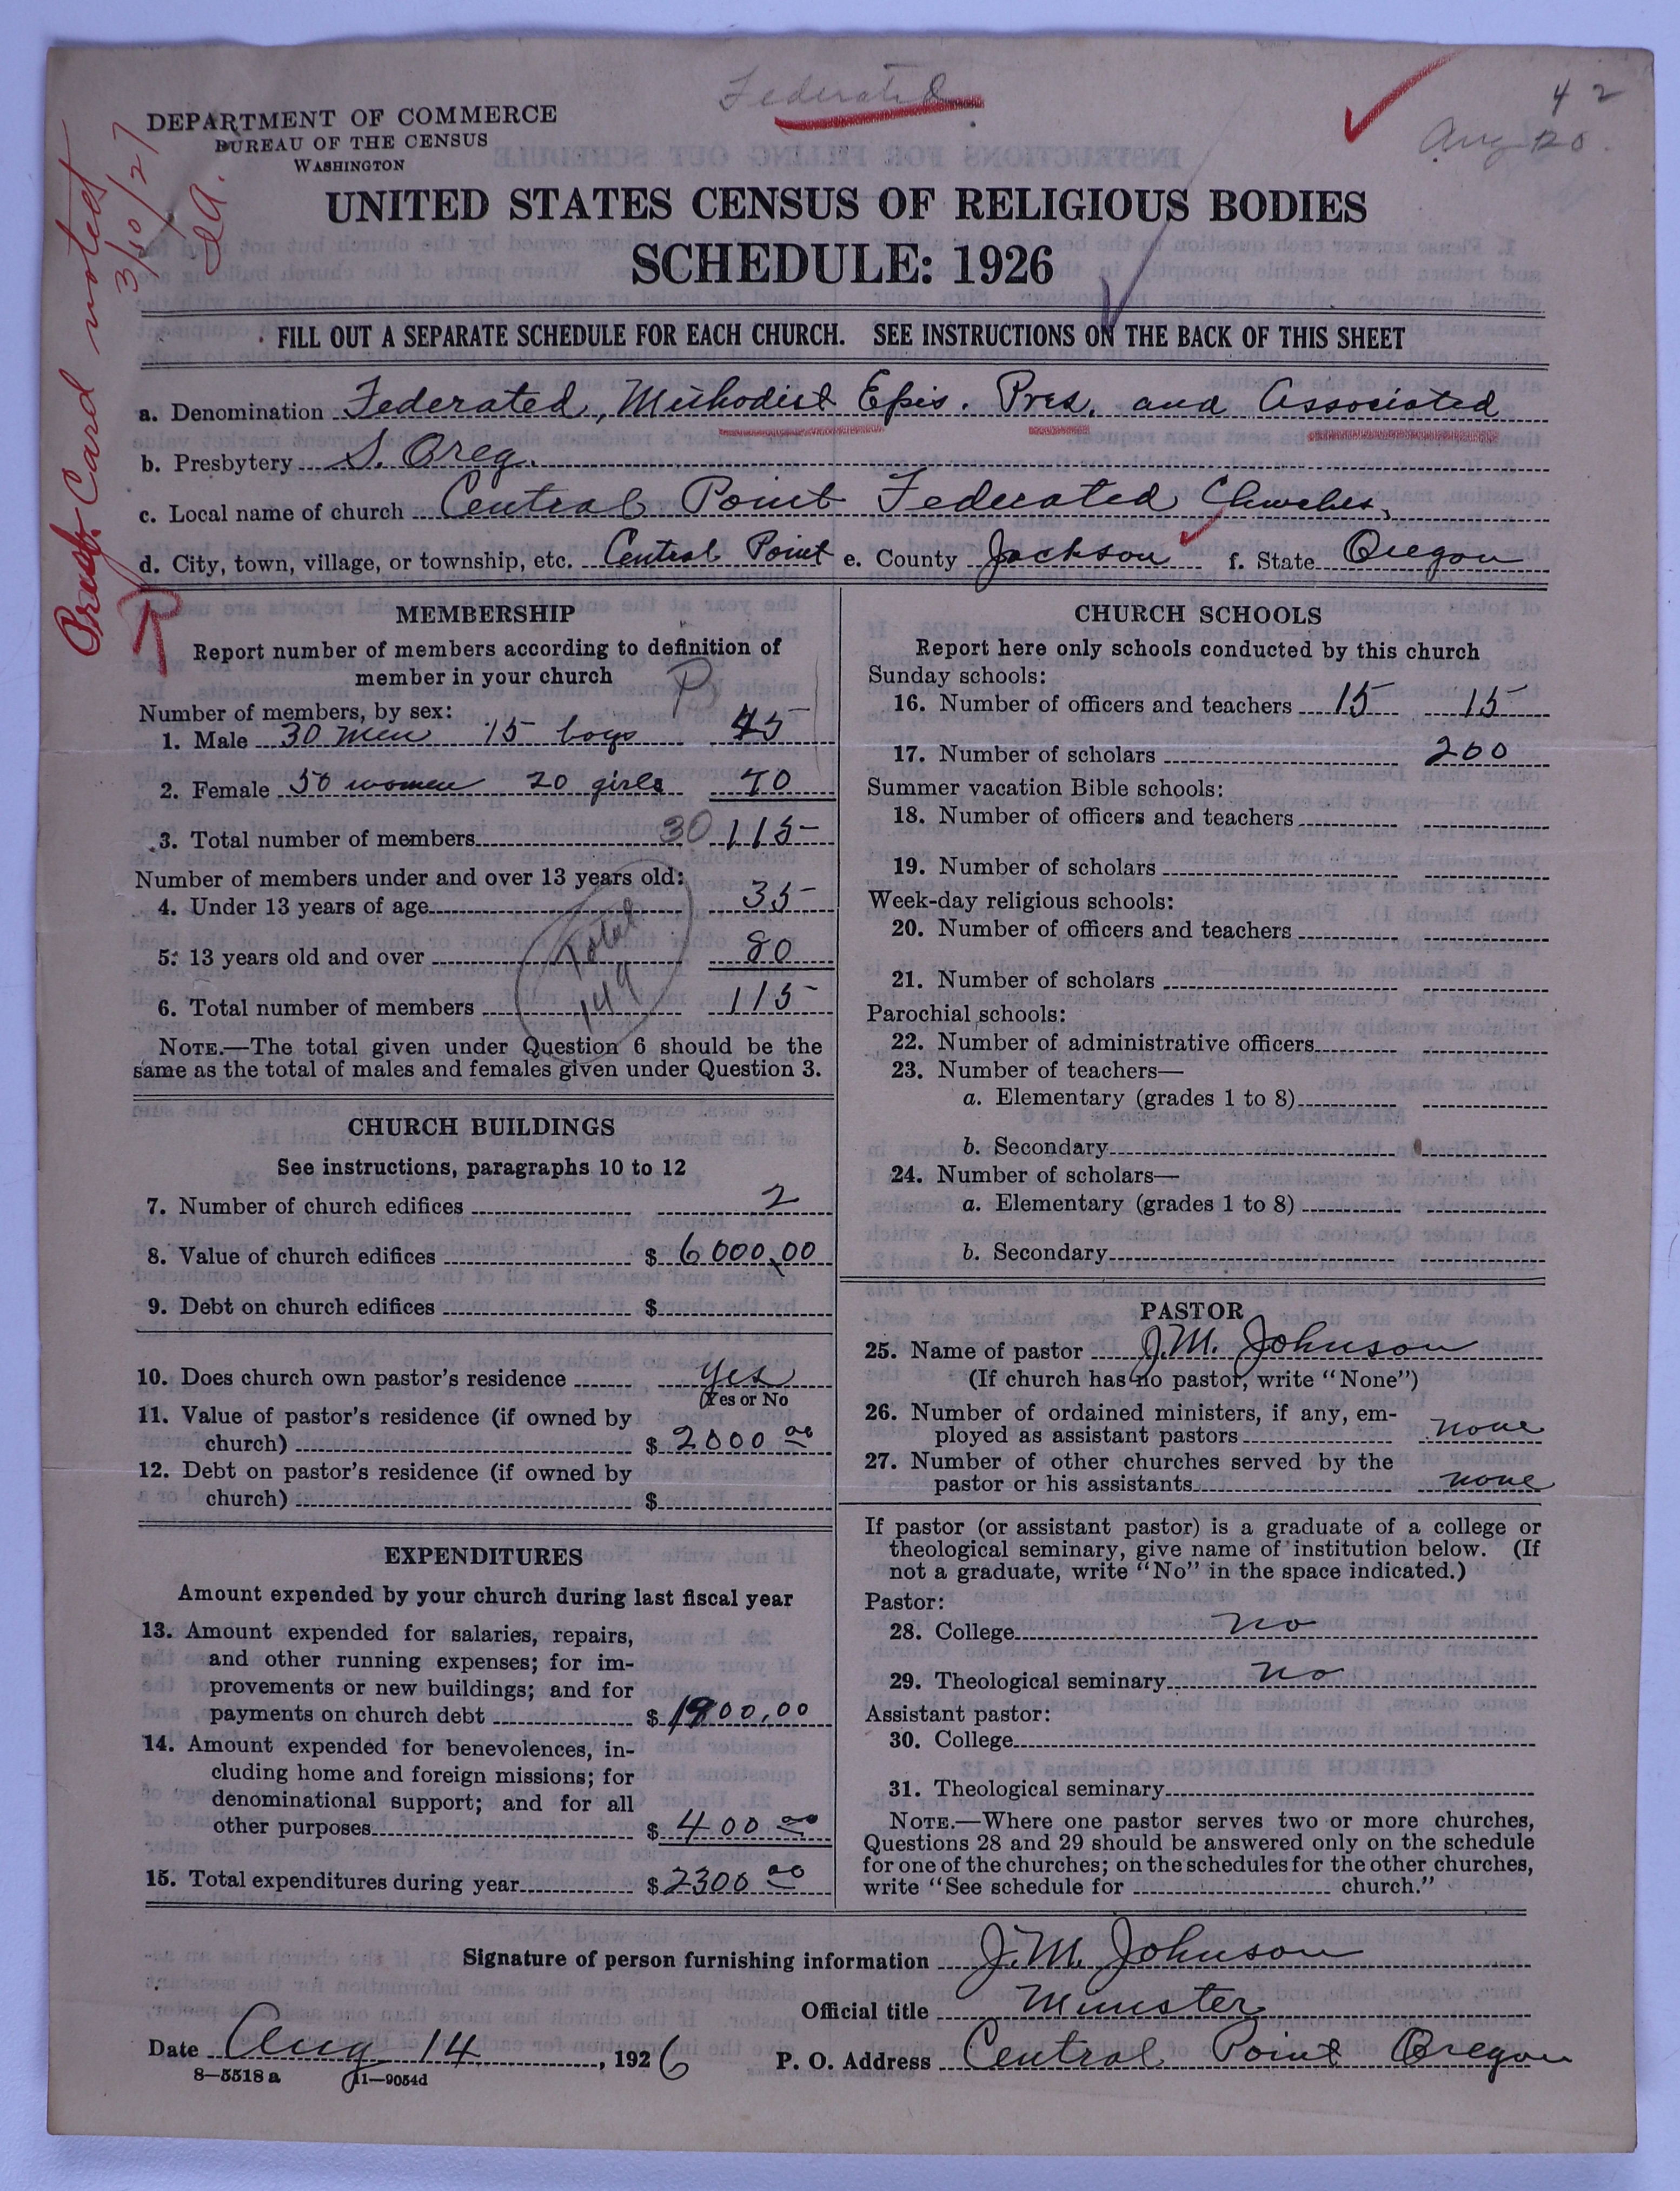 Federated
42
Aug 20.
Presby. Card noted
3/30/27
DEPARTMENT OF COMMERCE
BUREAU OF THE CENSUS
WASHINGTON
UNITED STATES CENSUS OF RELIGIOUS BODIES
SCHEDULE: 1926
FILL OUT A SEPARATE SCHEDULE FOR EACH CHURCH. SEE INSTRUCTIONS ON THE BACK OF THIS SHEET
a. Denomination Federated, Methodist Epis. Pres. and Associated
b. Presbytery S. Oreg.
c. Local name of church Central Point Federated Churches,
d. City, town, village, or township, etc. Central Point e. County Jackson f. State Oregon
MEMBERSHIP
Report number of members according to definition of
member in your church
P
Number of members, by sex:
1. Male 30 men 15 boys 45
2. Female 50 women 20 girls 70
3. Total number of members 30 115
Number of members under and over 13 years old:
4. Under 13 years of age 35
5. 13 years old and over 80
6. Total number of members 115
Total
149
NOTE.—The total given under Question 6 should be the
same as the total of males and females given under Question 3.
CHURCH BUILDINGS
See instructions, paragraphs 10 to 12
7. Number of church edifices 2
8. Value of church edifices $ 6000.00
9. Debt on church edifices $
10. Does church own pastor's residence yes
(Yes or No
11. Value of pastor's residence (if owned by
church) $ 2000 00
12. Debt on pastor's residence (if owned by
church) $
EXPENDITURES
Amount expended by your church during last fiscal year
13. Amount expended for salaries, repairs,
and other running expenses; for im-
provements or new buildings; and for
payments on church debt $ 1900.00
14. Amount expended for benevolences, in-
cluding home and foreign missions; for
denominational support; and for all
other purposes $ 400 00
15. Total expenditures during year $ 2300 00
CHURCH SCHOOLS
Report here only schools conducted by this church
Sunday schools:
16. Number of officers and teachers 15 15
17. Number of scholars 200
Summer vacation Bible schools:
18. Number of officers and teachers
19. Number of scholars
Week-day religious schools:
20. Number of officers and teachers
21. Number of scholars
Parochial schools:
22. Number of administrative officers
23. Number of teachers—
a. Elementary (grades 1 to 8)
b. Secondary
24. Number of scholars—
a. Elementary (grades 1 to 8)
b. Secondary
PASTOR
25. Name of pastor J. M. Johnson
(If church has no pastor, write "None")
26. Number of ordained ministers, if any, em-
ployed as assistant pastors none
27. Number of other churches served by the
pastor or his assistants none
If pastor (or assistant pastor) is a graduate of a college or
theological seminary, give name of institution below. (If
not a graduate, write "No" in the space indicated.)
Pastor:
28. College no
29. Theological seminary no
Assistant pastor:
30. College
31. Theological seminary
NOTE.—Where one pastor serves two or more churches,
Questions 28 and 29 should be answered only on the schedule
for one of the churches; on the schedules for the other churches,
write "See schedule for church."
Signature of person furnishing information J. M. Johnson
Official title Minister
Date Aug 14, 1926 P. O. Address Central Point Oregon
8—5518 a 11—9054d